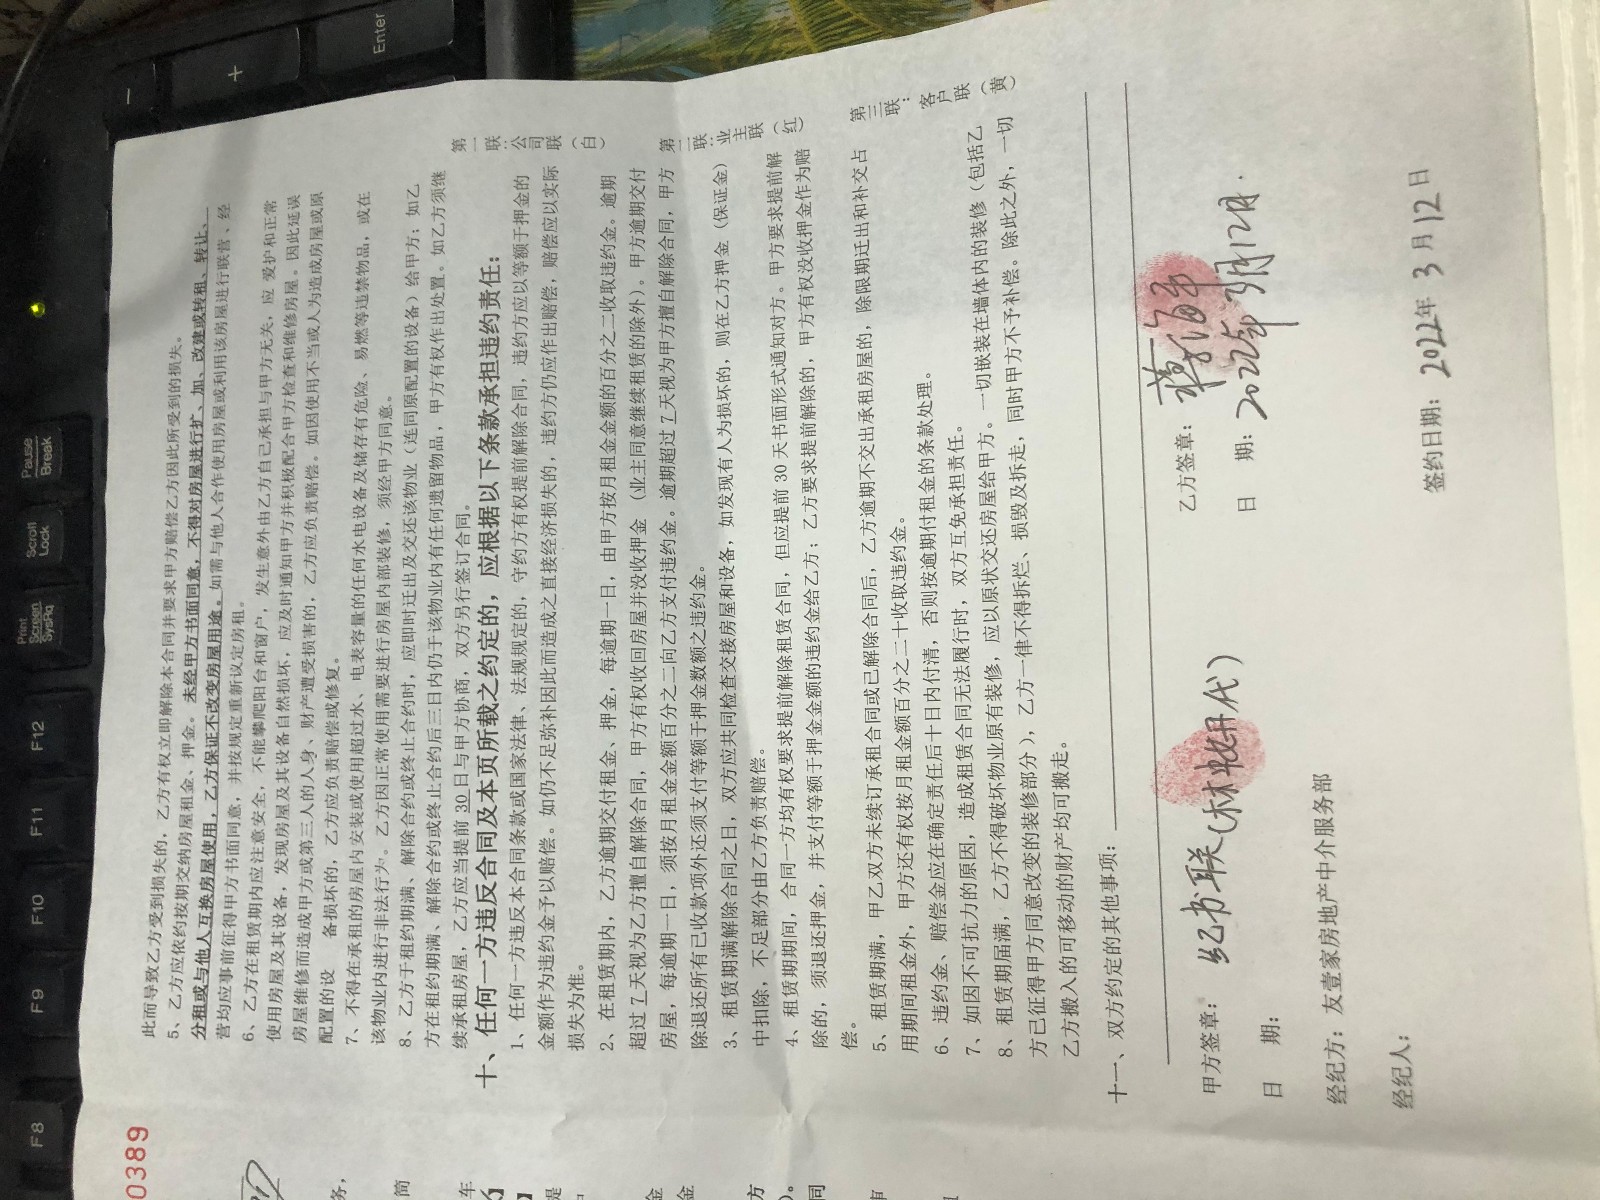 此而导致乙方受到损失的，乙方有权立即解除本合同并要求甲方赔偿乙方因此所受到的损失。
5、乙方应依约按期交纳房屋租金、押金。未经甲方书面同意，不得对房屋进行扩、加、改建或转租、转让、
分租或与他人互换房屋使用，乙方保证不改变房屋用途。如需与他人合作使用房屋或利用该房屋进行联营、经
营均应事前征得甲方书面同意，并按规定重新议定房租。
6、乙方在租赁期内应注意安全，不能攀爬阳台和窗户，发生意外由乙方自己承担与甲方无关，应 爱护和正常
使用房屋及其设备，发现房屋及其设备自然损坏，应及时通知甲方并积极配合甲方检查和维修房屋。因此延误
房屋维修而造成甲方或第三人的人身、财产遭受损害的，乙方应负责赔偿。如因使用不当或人为造成房屋或原
配置的设 备损坏的，乙方应负责赔偿或修复。
7、不得在承租的房屋内安装或使用超过水、电表容量的任何水电设备及储存有危险、易燃等违禁物品，或在
该物业内进行非法行为。乙方因正常使用需要进行房屋内部装修，须经甲方同意。
8、乙方于租约期满、解除合约或终止合约时，应即时迁出及交还该物业（连同原配置的设备）给甲方；如乙
方在租约期满、解除合约或终止合约后三日内仍于该物业内有任何遗留物品，甲方有权作出处置。如乙方须继
续承租房屋，乙方应当提前 30 日与甲方协商，双方另行签订合同。
十、任何一方违反合同及本页所载之约定的，应根据以下条款承担违约责任：
1、任何一方违反本合同条款或国家法律、法规规定的，守约方有权提前解除合同，违约方应以等额于押金的
金额作为违约金予以赔偿。如仍不足弥补因此而造成之直接经济损失的，违约方仍应作出赔偿，赔偿应以实际
损失为准。
2、在租赁期内，乙方逾期交付租金、押金，每逾期一日，由甲方按月租金金额的百分之二收取违约金。逾期
超过 7 天视为乙方擅自解除合同，甲方有权收回房屋并没收押金（业主同意继续租赁的除外）。甲方逾期交付
房屋，每逾期一日，须按月租金金额百分之二向乙方支付违约金。逾期超过 7 天视为甲方擅自解除合同，甲方
除退还所有已收款项外还须支付等额于押金数额之违约金。
3、租赁期满解除合同之日，双方应共同检查交接房屋和设备，如发现有人为损坏的，则在乙方押金（保证金）
中扣除，不足部分由乙方负责赔偿。
4、租赁期期间，合同一方均有权要求提前解除租赁合同，但应提前 30 天书面形式通知对方。甲方要求提前解
除的，须退还押金，并支付等额于押金金额的违约金给乙方；乙方要求提前解除的，甲方有权没收押金作为赔
偿。
5、租赁期满，甲乙双方未续订承租合同或已解除合同后，乙方逾期不交出承租房屋的，除限期迁出和补交占
用期间租金外，甲方还有权按月租金额百分之二十收取违约金。
6、违约金、赔偿金应在确定责任后十日内付清，否则按逾期付租金的条款处理。
7、如因不可抗力的原因，造成租赁合同无法履行时，双方互免承担责任。
8、租赁期届满，乙方不得破坏物业原有装修，应以原状交还房屋给甲方。一切嵌装在墙体内的装修（包括乙
方已征得甲方同意改变的装修部分），乙方一律不得拆烂、损毁及拆走，同时甲方不予补偿。除此之外，一切
乙方搬入的可移动的财产均可搬走。
十一、双方约定的其他事项：
甲方签章：纪书联（林 代） 乙方签章：
日 期： 日 期：2022年3月12月.
经纪方：友壹家房地产中介服务部
经纪人： 签约日期：2022年 3 月 12 日
第一联：公司联（白）
第二联：业主联（红）
第三联：客户联（黄）
0389
F8
F9
F10
F11
F12
Print Screen SysRq
Scroll Lock
Pause Break
Enter
+
−